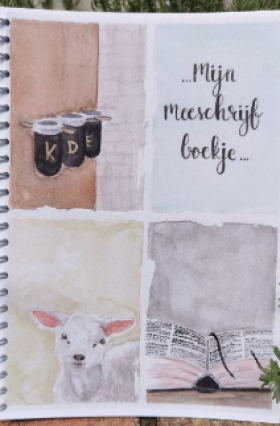 ...Mijn
meeschrijf
boekje...
K D E